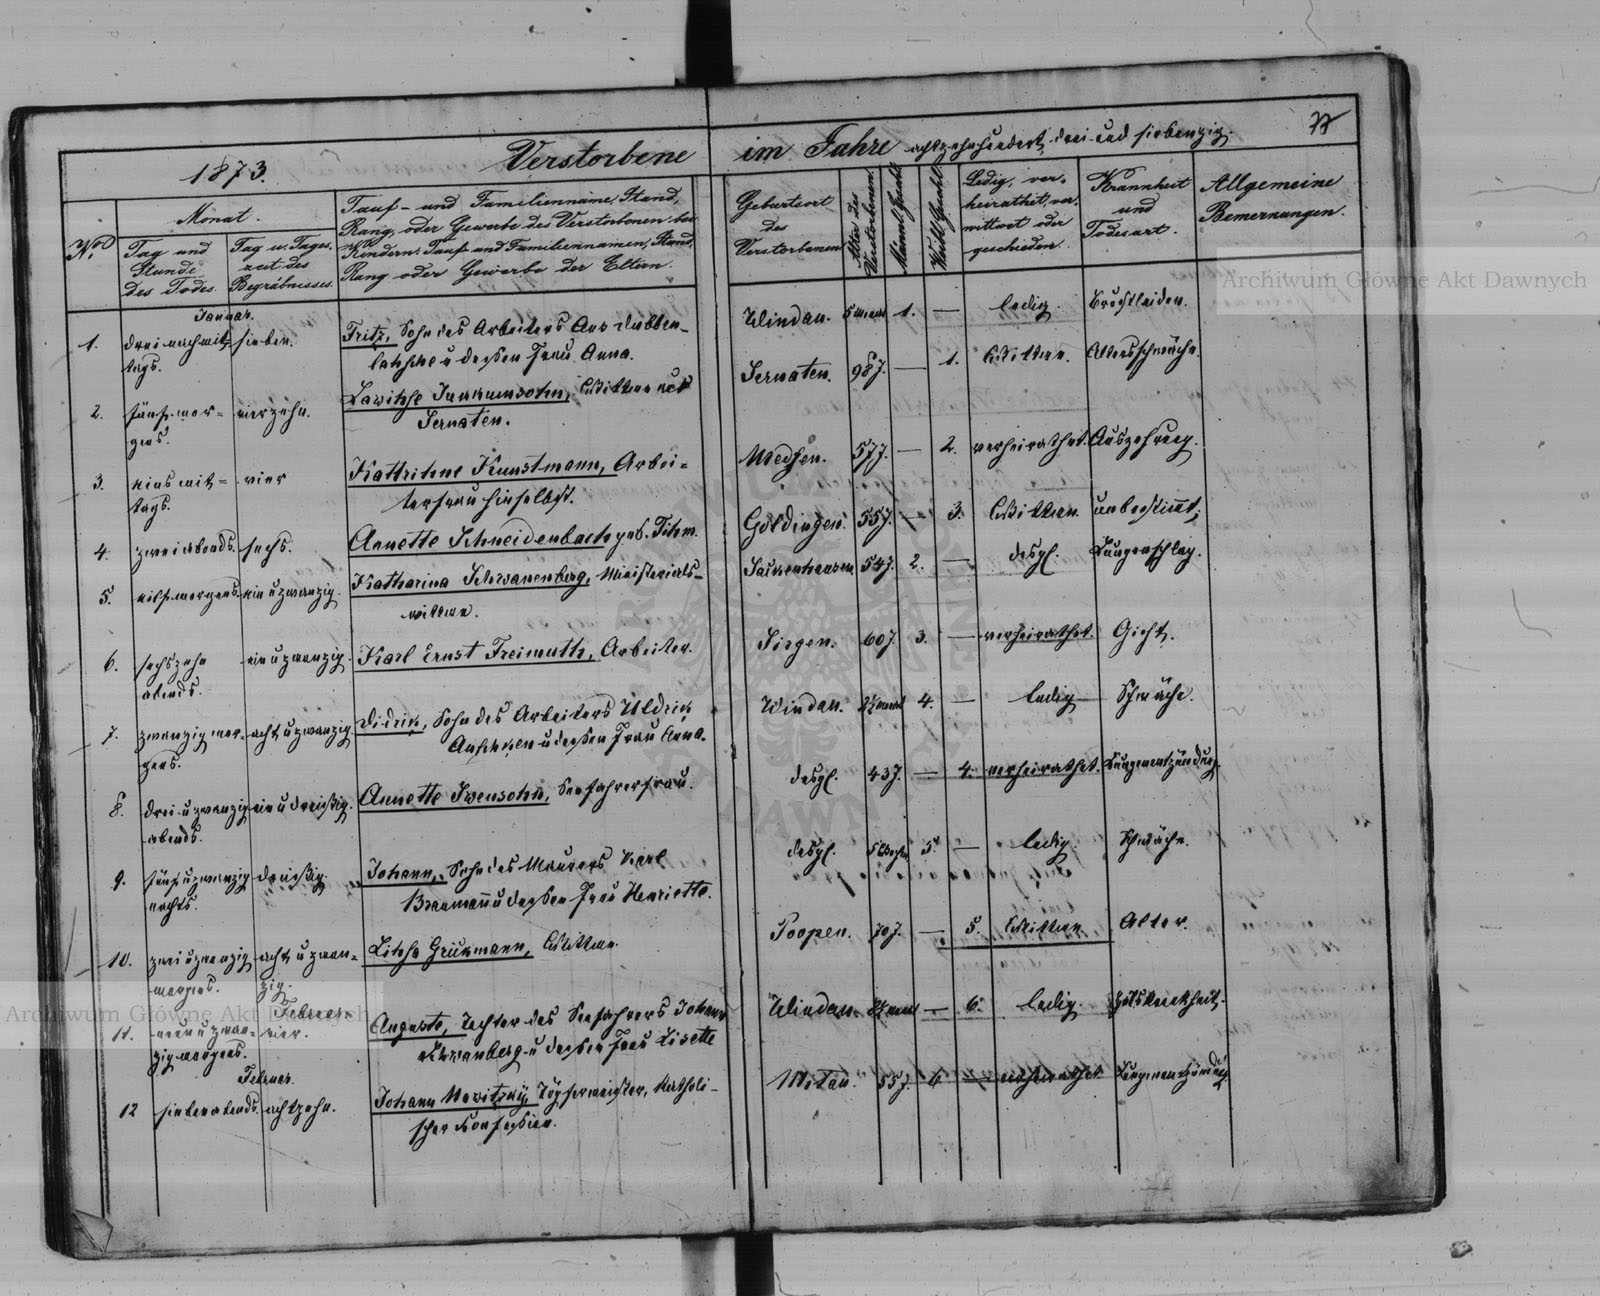 77
1873.
Verstorbene im Jahre achtzehnhundert drei und siebenzig.
No.
Monat.
Tag und Stunde des Todes.
Tag u. Tages-zeit des Begräbnisses.
Tauf- und Familienname, Stand,
Rang, oder Gewerbe des Verstorbenen bei
Kindern: Tauf- und Familiennamen, Stand,
Rang oder Gewerbe der Eltern.
Geburtsort des Verstorbenen
Alter des Verstorbenen.
Männl. Geschl.
Weibl. Geschl.
Ledig, ver-
heirathet, ver-
wittwet oder
geschieden.
Krankheit
und
Todesart.
Allgemeine
Bemerkungen.
Archiwum Główne Akt Dawnych
Januar.
1. drei nachmit- sieben. Fritz, Sohn des Arbeiters Ans Windau. 5 Monat 1. — ledig. Brustleiden.
tags. u dessen Frau Anna.
2. fünf mor- vierzehn. Wittwe aus Sernaten. 98 J. — 1. Wittwe. Altersschwäche.
gens. Sernaten.
3. eins mit- vier Kattrihne Kunstmann, Arbei- 57 J. — 2. verheirathet. Auszehrung.
tags. terfrau hieselbst.
4. zwei abends. sechs. Annette Schneidenbach geb. Goldingen. 55 J. — 3. Wittwe. unbestimt.
5. eilf morgens. ein u zwanzig. Katharina Schwanenberg, Ministerials- Sackenhausen. 54 J. 2. — desgl. Lungenschlag.
wittwe.
6. sechszehn ein u zwanzig. Karl Ernst Freimuth, Arbeiter. Sirgen. 60 J. 3. — verheirathet. Gicht.
abends.
7. zwanzig mor- acht u zwanzig. Didrik, Sohn des Arbeiters Uldrik Windau. 4. — ledig Schwäche.
gens. u dessen Frau Anna.
8. drei u zwanzig ein u dreißig. Annette Iwensohn, Seefahrerfrau. desgl. 43 J. — 4. verheirathet. Lungenentzündung.
abends.
9. fünf u zwanzig dreißig. Johann, Sohn des Maurers Karl desgl. 5 Woch. 5. — ledig. Schwäche.
nachts. Braumann u dessen Frau Henriette.
10. zwei u zwanzig acht u zwan- Grükmann, Wittwe. Poopen. 70 J. — 5. Wittwe Alter.
morgens. zig.
Archiwum Główne Akt Dawnych
Februar.
11. neun u zwan- vier. Auguste, Tochter des Seefahrers Johann Windau. — 6. ledig. Halskrankheit.
zig morgens. Schwanberg u dessen Frau Lisette
Februar.
12 sieben abends. achtzehn. Johann Nowitzky, Töpfermeister, katholi- Mitau. 55 J. 6 — verheirathet. Lungenentzündung
scher Konfession.